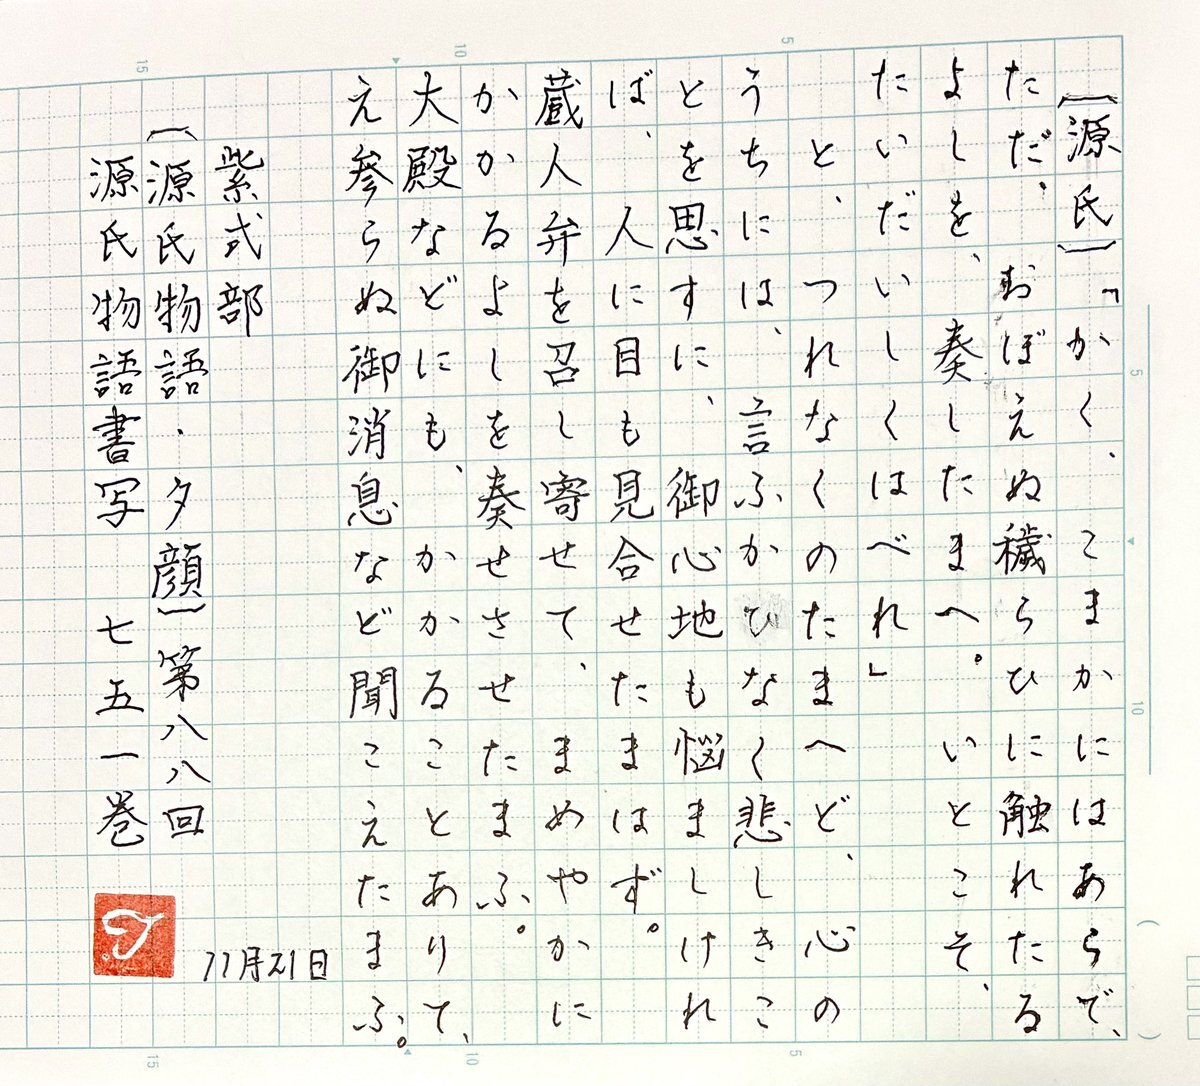 〔源氏〕「かく、こまかにはあらで、
ただ、おぼえぬ穢らひに触れたる
よしを、奏したまへ。いとこそ、
たいだいしくはべれ」
と、つれなくのたまへど、心の
うちには、言ふかひなく悲しきこ
とを思すに、御心地も悩ましけれ
ば、人に目も見合せたまはず。
蔵人弁を召し寄せて、まめやかに
かかるよしを奏せさせたまふ。
大殿などにも、かかることありて、
え参らぬ御消息など聞こえたまふ。
紫式部
〔源氏物語・夕顔〕第八八回
源氏物語書写 七五一巻
11月21日
5
10
15
5
10
15
5
10